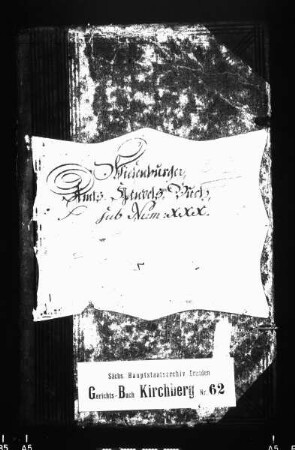 Wiesenburger,
Amts Handels Buch,
sub Num: XXX.
Sächs Hauptstaatsarchiv Dresden
Gerichts-Buch Kirchberg Nr. 62
A5